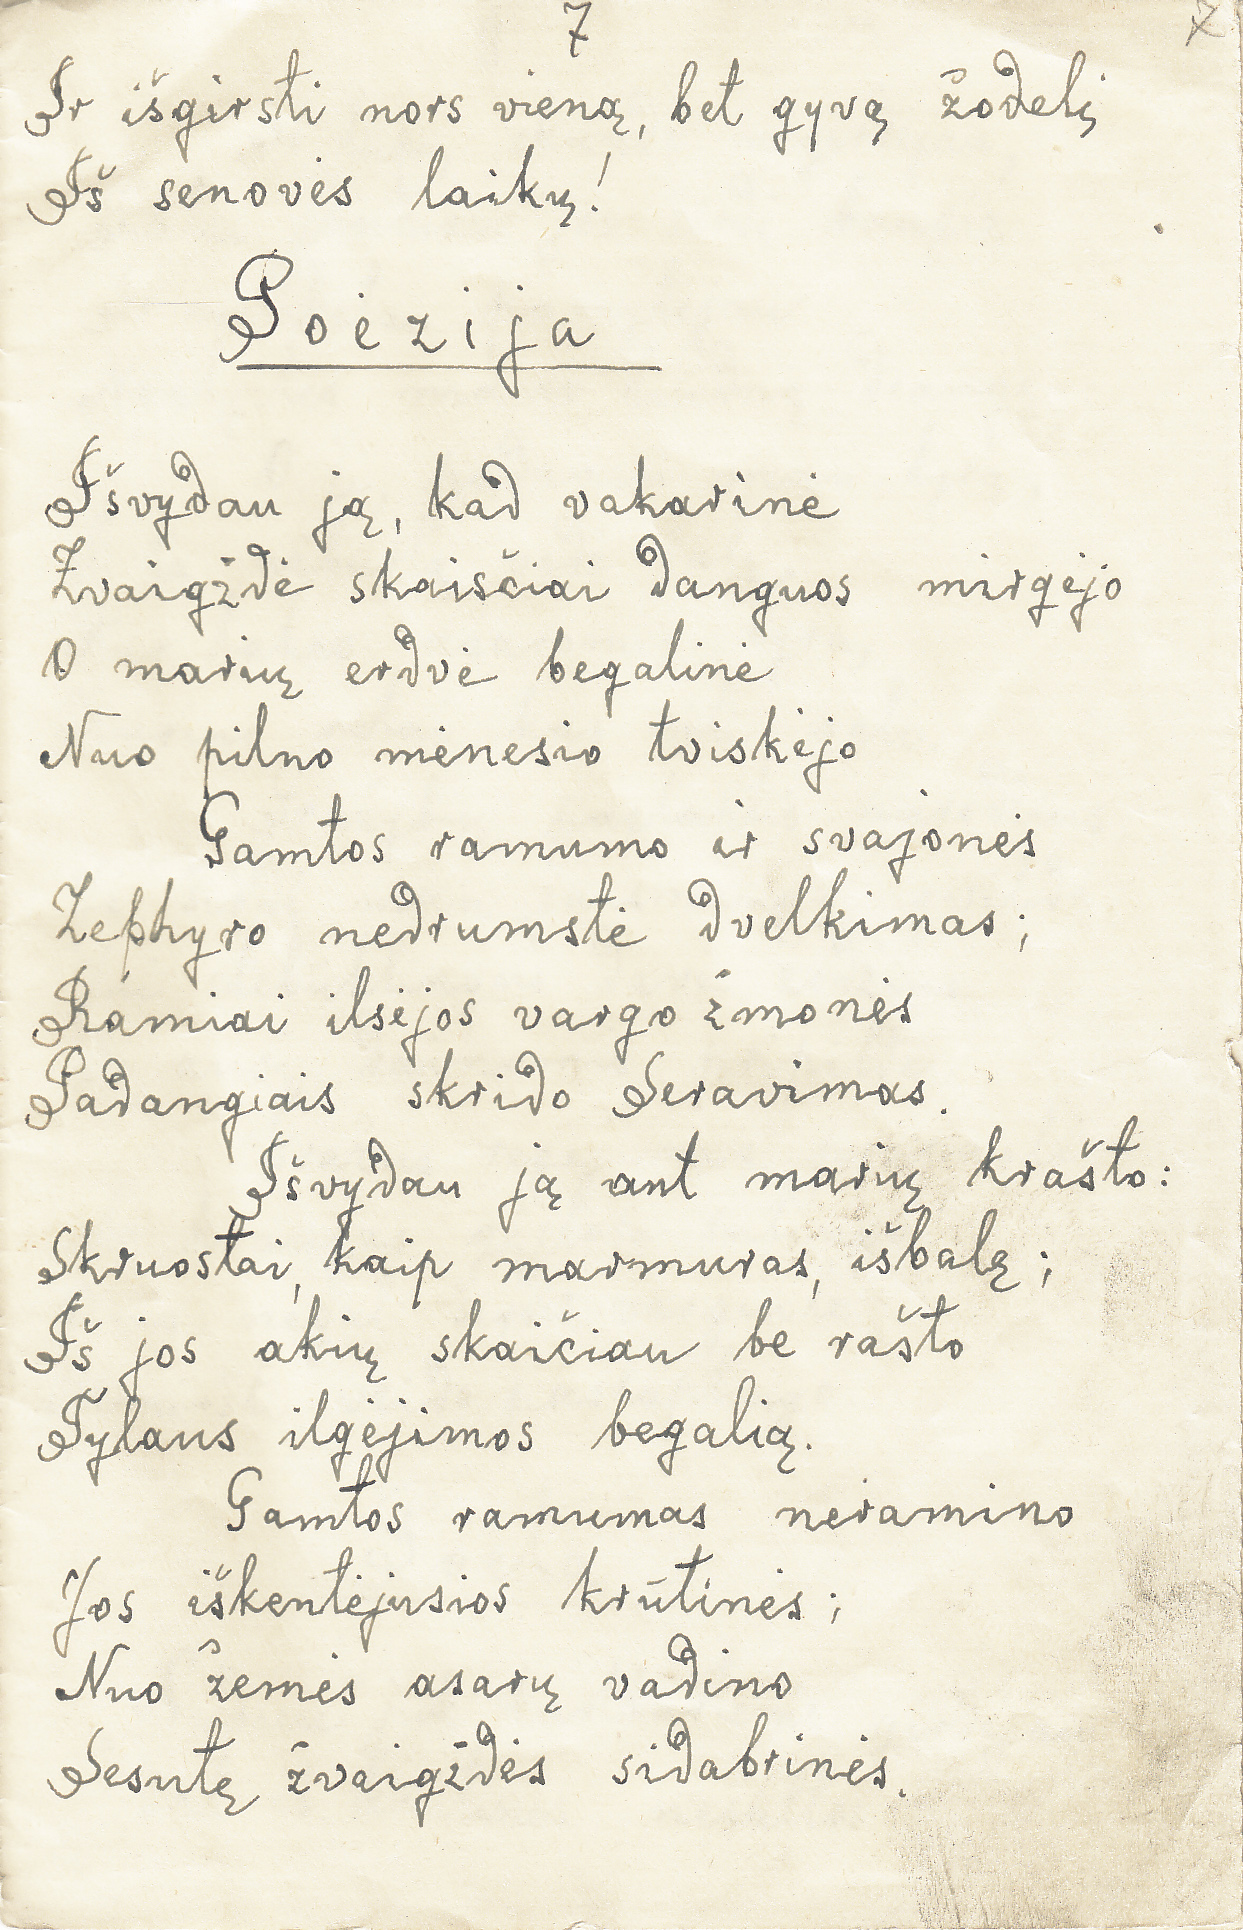 7 7
Ir išgirsti nors vieną, bet gyvą žodelį
Iš senovės laikų!
Poėzija
Išvydau ją, kad vakarinė
Žvaigždė skaisčiai danguos mirgėjo
O marių erdvė begalinė
Nuo pilno mėnesio tviskėjo
Gamtos ramumo ir svajonės
Zephyro nedrumstė dvelkimas;
Ramiai ilsėjos vargo žmonės
Padangiais skrido Seravimas.
Išvydau ją ant marių krašto:
Skruostai, kaip marmuras, išbalę;
Iš jos akių skaičiau be rašto
Tylaus ilgėjimos begalią.
Gamtos ramumas neramino
Jos iškentėjusios krūtinės;
Nuo žemės asarų vadino
Sesutę žvaigždės sidabrinės.